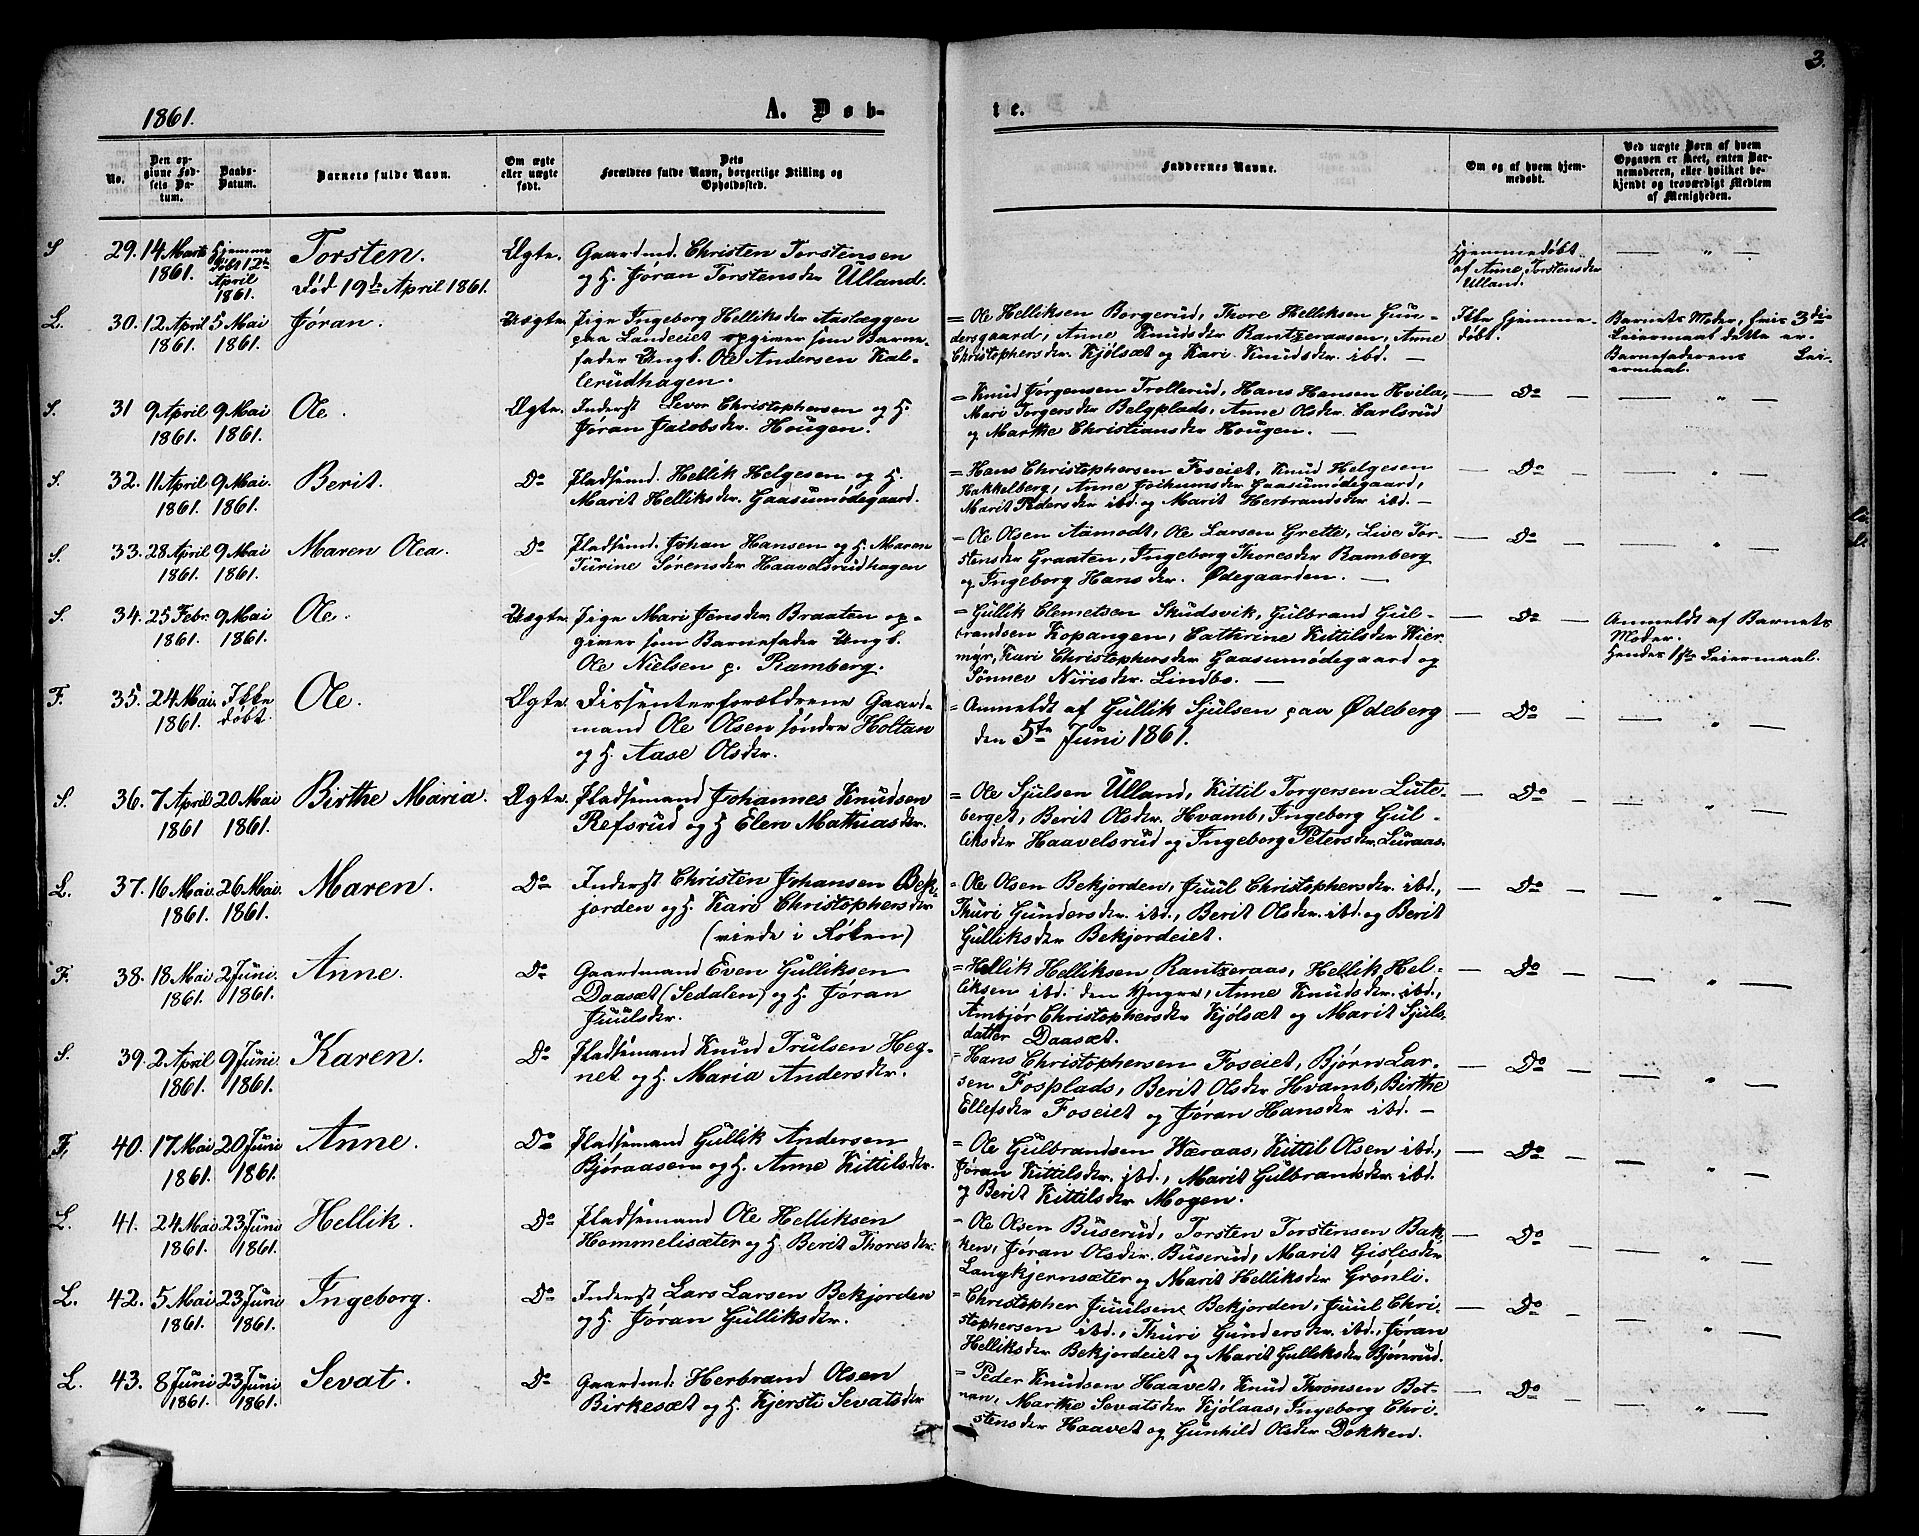 3.
1861.
A. Døb-
te.
No.
Den opgivne Fødsels Datum.
Daabs-Datum.
Barnets fulde Navn.
Om ægte eller uægte født.
Forældres fulde Navn, borgerlige Stilling og Opholdssted.
Faddernes Navne.
Om og af hvem hjemmedøbt.
Ved uægte Børn af hvem Opgaven er skeet, enten Barnemoderen, eller hvilket bekjendt og troværdigt Medlem af Menigheden.
S 29. 14 Marts 1861. Hjemmedøbt 12te April 1861. Torsten. død 19de April 1861. Ægte.
Gaardmd. Christen Torstensen
og H. Jøran Torstensdr Ulland.
Hjemmedøbt
af Anne Torstensdr
Ulland.
— " —
L. 30. 12 April 1861. 5 Mai 1861. Jøran. Uægte.
Pige Ingeborg Helliksdr Aaslæggen
paa Landeiet opgiver som Barne-
fader Ungk. Ole Andersen Kal-
lerudhagen.
= Ole Helliksen Borgerud, Thore Helliksen Gun-
dersgaard, Anne Knudsdr Rantzeraasen, Anne
Christophersdr. Kjølsæt og Kari Knudsdr. ibd. —
Ikke Hjemme-
døbt.
Barnets Moder, hvis 3die
Leiermaal dette er.
Barnefaderens Lei-
ermaal.
S. 31 9 April 1861. 9 Mai 1861. Ole. Ægte.
Inderst Levor Christophersen og H.
Jøran Jacobsdr. Hougen.
= Knud Jørgensen Trollerud, Hans Hansen Hvila,
Mari Torgersdr Belgplads, Anne Olsdr. Carlsrud
og Marthe Christiansdr Hougen. —
— Do — — " —
S. 32. 11 April 1861. 9 Mai. 1861. Berit. Do
Pladsemd. Hellik Helgesen og H.
Marit Helliksdr. Gaasumødegaard.
= Hans Christophersen Foseiet, Knud Helgesen
Hakkelberg, Anne Jochumsdr Gaasumødegaard,
Marit Pedersdr ibd. og Marit Herbrandsdr ibd. —
— Do — — " —
S. 33. 28 April 1861. 9 Mai 1861. Maren Olea. Do
Pladsemd. Johan Hansen og H. Maren
Turine Sørensdr Haavelsrudhagen
= Ole Olsen Aamodt, Ole Larsen Grette, Live Tor-
stensdr Graaten, Ingeborg Thoresdr Ramberg
og Ingeborg Hansdr. Ødegaarden. —
— Do — — " —
S. 34. 25 Febr. 1861. 9 Mai 1861. Ole. Uægte.
Pige Mari Jensdr. Braaten op-
giver som Barnefader Ungk.
Ole Nielsen p. Ramberg.
= Gullik Clemetsen Skudsvik, Gulbrand Gul-
brandsen Kopangen, Cathrine Kittilsdr Wier-
myr, Kari Christophersdr Gaasumødegaard og
Sønnev Nirisdr. Lindbo. —
— Do —
Anmeldt af Barnets
Moder.
Hendes 1ste Leiermaal.
F. 35. 24 Mai. 1861. Ikke døbt. Ole. Ægte.
Dissenterforældrene Gaard-
mand Ole Olsen søndre Holtan
og H. Aase Olsdr.
= Anmeldt af Gullik Sjulsen paa Ødeberg
den 5te Juni 1861.
— Do — — " —
S. 36. 7 April 1861 20 Mai 1861. Birthe Maria. Ægte.
Pladsemand Johannes Knudsen
Refsrud og H Elen Mathiasdr.
= Ole Sjulsen Ulland, Kittil Torgersen Lute-
berget, Berit Olsdr. Hvamb, Ingeborg Gul-
liksdr Haavelsrud og Ingeborg Petersdr Luraas.
— Do — — " —
L. 37. 16 Mai. 1861. 26 Mai. 1861. Maren. Do
Inderst Christen Johansen Bek-
jorden og H. Kari Christophersdr
(viede i Røken)
= Ole Olsen Bekjorden, Juul Christophersdr. ibd.,
Thuri Gundersdr. ibd., Berit Olsdr. ibd. og Berit
Gulliksdr Bekjordeiet.
— Do — — " —
F. 38. 18 Mai 1861. 2 Juni. 1861. Anne. Do
Gaardmand Even Gulliksen
Daasæt (Sedalen) og H. Jøran
Juulsdr.
= Hellik Helliksen Rantzeraas, Hellik Hel-
liksen ibd. den Yngre, Anne Knudsdr. ibd.,
Ambjør Christophersdr Kjølsæt og Marit Sjuls-
datter Daasæt.
— Do — — " —
S. 39. 2 April 1861. 9 Juni. 1861. Karen. Do
Pladsemand Knud Trulsen Heg-
net og H. Maria Andersdr.
= Hans Christophersen Foseiet, Bjørn Lar-
sen Fosplads, Berit Olsdr Hvamb, Birthe
Ellefsdr Foseiet og Jøran Hansdr ibd. —
— Do — — " —
F. 40. 17 Mai 1861. 20 Juni 1861. Anne. Do
Pladsemand Gullik Andersen
Bjøraasen og H. Anne Kittilsdr.
= Ole Gulbrandsen Wæraas, Kittil Olsen ibd.,
Jøran Kittilsdr. ibd., Marit Gulbrandsdr. ibd.
og Berit Kittilsdr Mogen.
— Do — — " —
L. 41. 24 Mai 1861. 23 Juni 1861. Hellik. Do
Pladsemand Ole Helliksen
Hommelisæter og H Berit Thoresdr.
= Ole Olsen Buserud, Torsten Torstensen Bak-
ken, Jøran Olsdr. Buserud, Marit Gislesdr
Langkjernsæter og Marit Helliksdr Grønli.
— Do — — " —
L. 42. 5 Mai 1861. 23 Juni 1861. Ingeborg. Do
Inderst Lars Larsen Bekjorden
og H. Jøran Gulliksdr.
= Christopher Juulsen Bekjorden, Juul Chri-
stophersen ibd., Thuri Gundersdr. ibd., Jøran
Helliksdr Bekjordeiet og Marit Gulliksdr Bjørnrud.
— Do — — " —
L. 43. 8 Juni 1861. 23 Juni 1861. Sevat. Do
Gaardmd. Herbrand Olsen
Birkesæt og H. Kjersti Sevatsdr
= Peder Knudsen Haavet, Knud Thronsen Bot-
nan, Marthe Sevatsdr Kjølaas, Ingeborg Chri-
stensdr Haavet og Gunhild Olsdr Dokken.
— Do — — " —